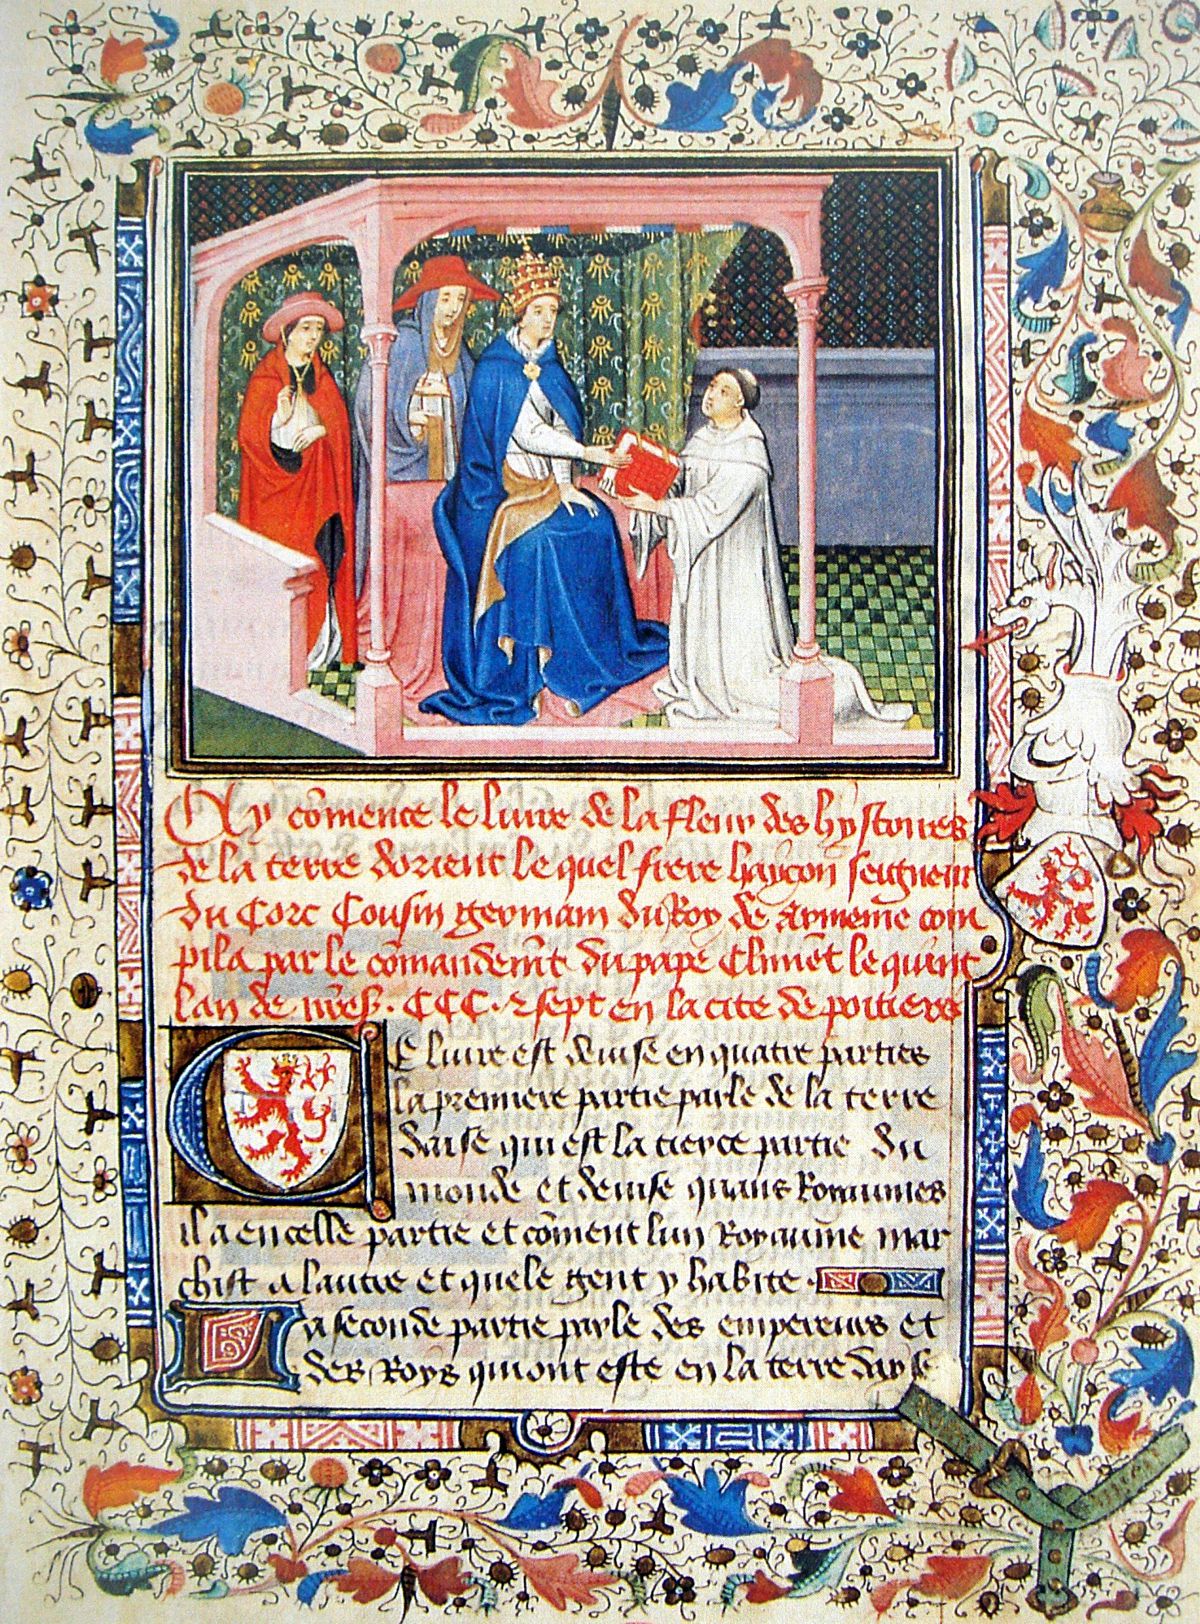 Cy cōmence le liure de la fleur des hystoires
de la terre dorient le quel frere haycon seigneur
du Corc Cousin germain du Roy de Armenie com
pila par le cōmandemēt du pape Clemēt le quint
lan de CCC. 7 sept en la cite de poitiers
Ce liure est deuise en quatre parties
la premiere partie parle de la terre
daise qui est la tierce partie du
monde et deuise quans Royaumes
il a en celle partie et cōment lun Royaume mar
chist a lautre et quele gent y habite
La seconde partie parle des empereurs et
des Roys qui ont este en la terre dayse